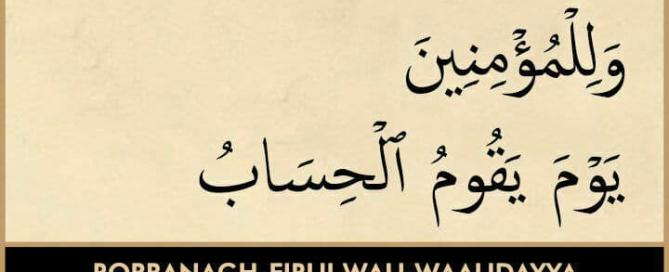 وَلِلْمُؤْمِنِينَ
يَوْمَ يَقُومُ ٱلْحِسَابُ
ROBBANACH-FIRULWALI WAALIDAYYA